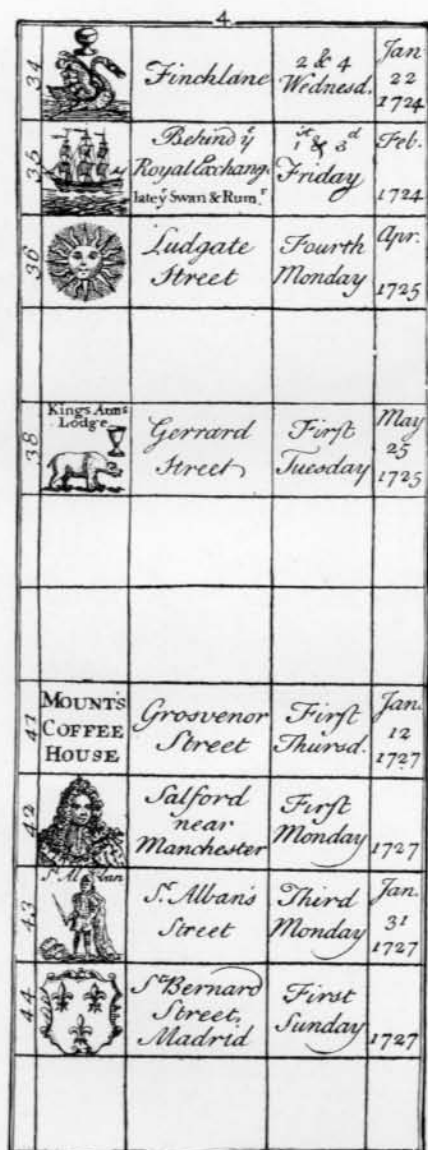 4
34
Finchlane
2 & 4
Wednesd.
Jan
22
1724
35
Behind yᵉ
Royal Exchang.
late yᵉ Swan & Rum.ʳ
1ˢᵗ & 3ᵈ
Friday
Feb.
1724
36
Ludgate
Street
Fourth
Monday
Apr.
1725
38
Kings Arms
Lodge
Gerrard
Street
First
Tuesday
May
25
1725
41
MOUNT'S
COFFEE
HOUSE
Grosvenor
Street
First
Thursd.
Jan.
12
1727
42
Salford
near
Manchester
First
Monday
1727
43
Sᵗ Alban
Sᵗ. Alban's
Street
Third
Monday
Jan.
31
1727
44
Sᵗ Bernard
Street,
Madrid
First
Sunday
1727